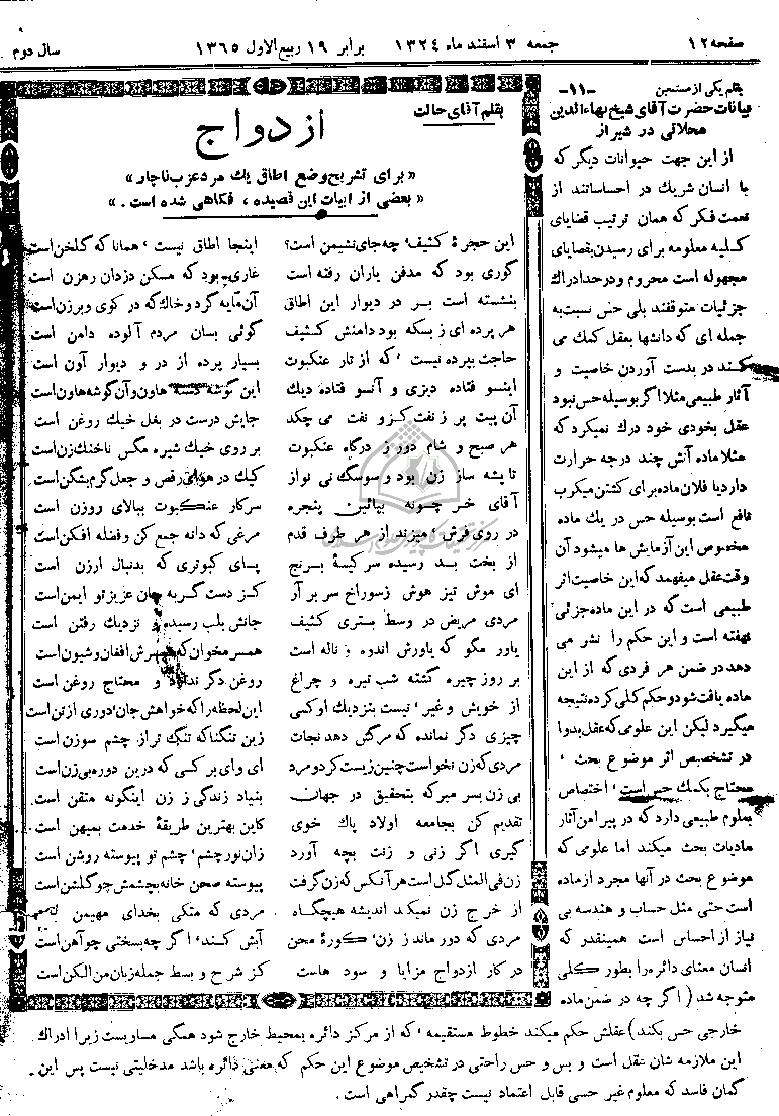 صفحه ۱۲
جمعه ۳ اسفند ماه ۱۳۲۴ برابر ۱۹ ربیع الاول ۱۳۶۵
سال دوم
بقلم یکی از مستمعین
-۱۱-
بیانات حضرت آقای شیخ بهاءالدین
محلاتی در شیراز
از این جهت حیوانات دیگر که
با انسان شریک در احساساتند از
نعمت فکر که همان ترتیب قضایای
کلیه معلومه برای رسیدن بقضایای
مجهوله است محروم و در حد ادراک
جزئیات متوقفند بلی حس نسبت به
جمله ای که دانشها بعقل کمک می
کند در بدست آوردن خاصیت و
آثار طبیعی مثلا اگر بوسیله حس نبود
عقل بخودی خود درك نمیکرد که
مثلا ماده آتش چند درجه حرارت
دارد یا فلان ماده برای کشتن میکرب
نافع است بوسیله حس در یك ماده
مخصوص این آزمایش ها میشود آن
وقت عقل میفهمد که این خاصیت اثر
طبیعی است که در این ماده جزئی
نهفته است و این حکم را نشر می
دهد در ضمن هر فردی که از این
ماده یافت شود و حکم کلی کرده نتیجه
میگیرد لیکن این علومی که عقل بدوا
در تشخیص اثر موضوع بحث ،
محتاج بکمك حس است ، اختصاص
بعلوم طبیعی دارد که در پیرامن آثار
مادیات بحث میکند اما علومی که
موضوع بحث در آنها مجرد از ماده
است حتی مثل حساب و هندسه بی
نیاز از احساس است همینقدر که
انسان معنای دائره را بطور کلی
متوجه شد ( اگر چه در ضمن ماده
خارجی حس بکند ) عقلش حکم میکند خطوط مستقیمه ، که از مرکز دائره بمحیط خارج شود همگی مساویست زیرا ادراك
این ملازمه شان عقل است و بس و حس راحتی در تشخیص موضوع این حکم که معنی دائره باشد مدخلیتی نیست پس این
گمان فاسد که معلوم غیر حسی قابل اعتماد نیست چقدر گمراهی است .
بقلم آقای حالت
ازدواج
« برای تشریح وضع اطاق یك مرد عزب ناچار »
« بعضی از ابیات این قصیده ، فکاهی شده است . »
این حجرهٔ کثیف ، چه جای نشیمن است؟ اینجا اطاق نیست ، همانا که گلخن است
گوری بود که مدفن یاران رفته است غاری بود که مسکن دزدان رهزن است
بنشسته است بر در و دیوار این اطاق آن مایه گرد و خاك که در کوی و برزن است
هر پرده ای ز بسکه بود دامنش کثیف گوئی بسان مردم آلوده دامن است
حاجت بپرده نیست ، که از تار عنکبوت بسیار پرده از در و دیوار آون است
اینسو فتاده دیزی و آنسو فتاده دیك این گوشه کاسه هاون و آن گوشه هاون است
آن پیت پر ز نفت کزو نفت می چکد جایش درست در بغل خیك روغن است
هر صبح و شام دور ز درگاه عنکبوت بر روی خیك شیره مگس ناخنك زن است
تا پشه ساز زن بود و سوسك نی نواز کیك در هوای رقص و جعل گرم بشکن است
آقای خر چونه بپائین پنجره سرکار عنکبوت ببالای روزن است
در روی فرش ، میزند از هر طرف قدم مرغی که دانه جمع کن و فضله افکن است
از بخت بد رسیده سر کیسهٔ برنج پای کبوتری که بدنبال ارزن است
ای موش تیز هوش ز سوراخ سر بر آر کز دست گربه جان عزیز تو ایمن است
مردی مریض در وسط بستری کثیف جانش بلب رسیده و نزدیك رفتن است
یاور مگو که یاورش اندوه و ناله است همسر مخوان که همسرش افغان و شیون است
بر روز چیره گشته شب تیره و چراغ روغن دگر ندارد و محتاج روغن است
از خویش و غیر ، نیست بنزدیك او کسی این لحظه را که خواهش جان ، دوری از تن است
چیزی دگر نمانده که مرگش دهد نجات زین تنگنا که تنگ تر از چشم سوزن است
مردی که زن نخواست چنین زیست کرد و مرد ای وای بر کسی که درین دوره بی زن است
بی زن بسر مبر که بتحقیق در جهان بنیاد زندگی ز زن اینگونه متقن است
تقدیم کن بجامعه اولاد پاك خوی کاین بهترین طریقهٔ خدمت بمیهن است
گیری اگر زنی و زنت بچه آورد زان نور چشم ، چشم تو پیوسته روشن است
زن فی المثل گل است هر آنکس که زن گرفت پیوسته صحن خانه بچشمش چو گلشن است
از خرج زن نمیکند اندیشه هیچگاه مردی که متکی بخدای مهیمن است
مردی که دور ماند ز زن ، کورهٔ محن آبش کند ، اگر چه بسختی چو آهن است
در کار ازدواج مزایا و سود هاست کز شرح و بسط جمله زبان من الکن است